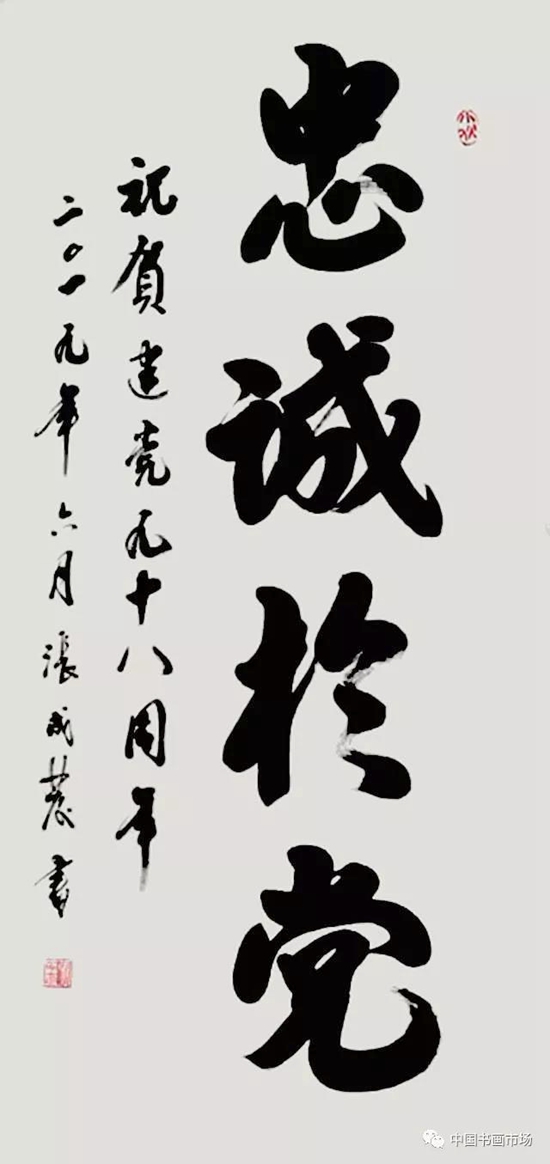 忠诚於党
祝贺建党九十八周年
二〇一九年六月張成農書
中国书画市场